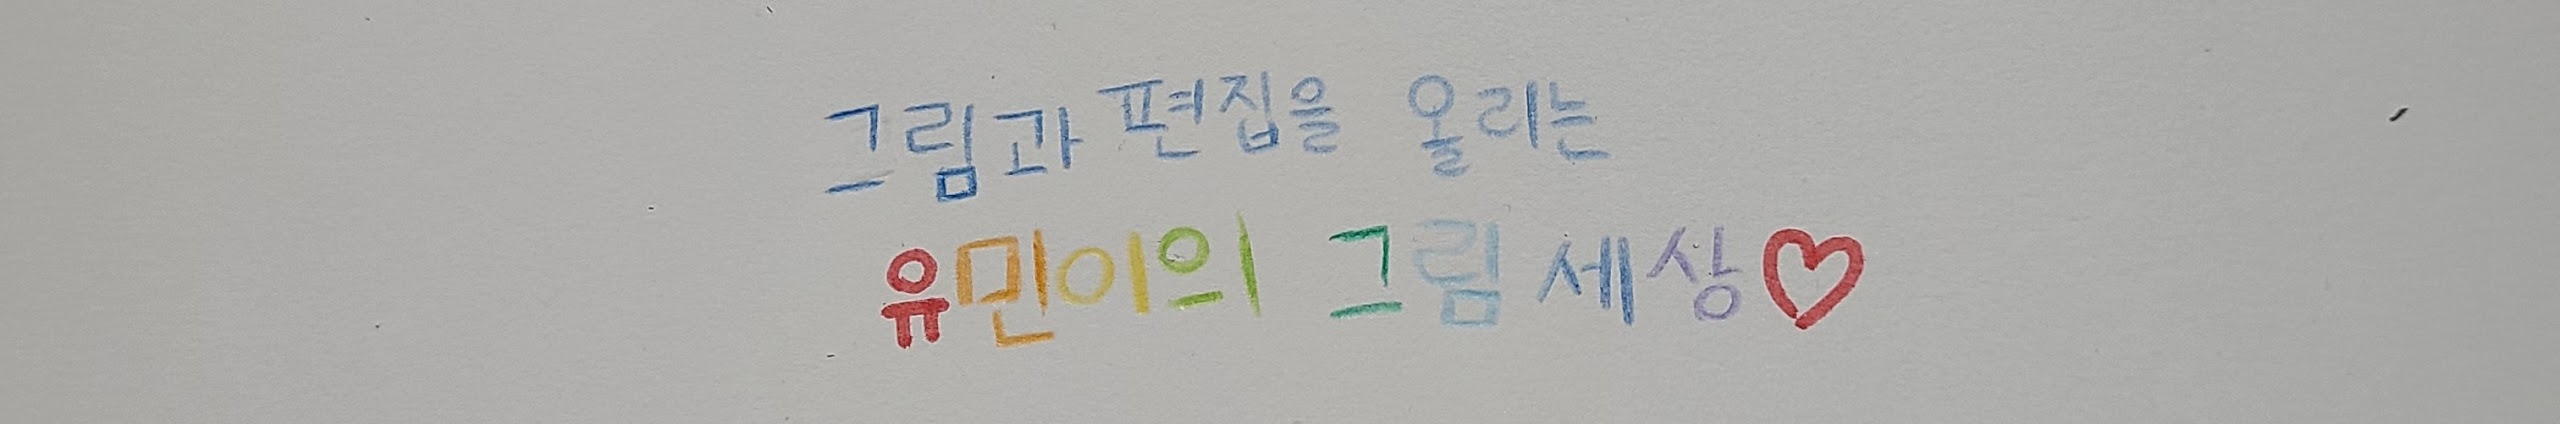 그림과 편집을 올리는
유민이의 그림 세상♡